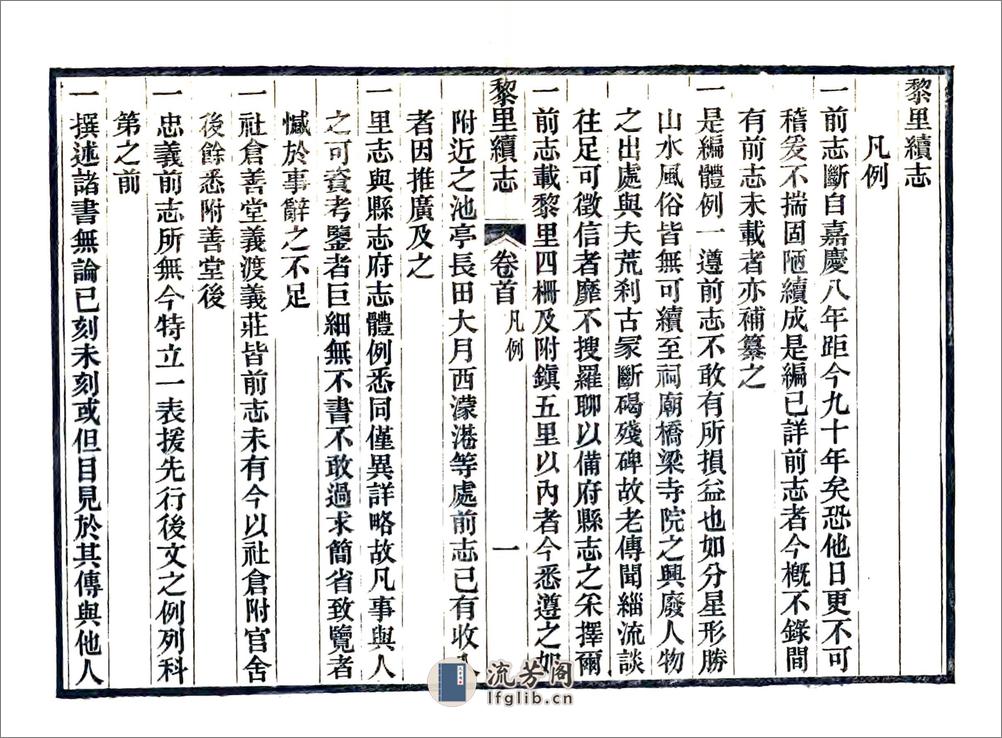 黎里續志
凡例
一前志斷自嘉慶八年距今九十年矣恐他日更不可
稽爰不揣固陋續成是編已詳前志者今概不錄間
有前志未載者亦補纂之
一是編體例一遵前志不敢有所損益也如分星形勝
山水風俗皆無可續至祠廟橋梁寺院之興廢人物
之出處與夫荒刹古冢斷碣殘碑故老傳聞緇流談
往足可徵信者靡不搜羅聊以備府縣志之采擇爾
一前志載黎里四柵及附鎮五里以內者今悉遵之如
黎里續志
卷首
凡例
一
附近之池亭長田大月西濛港等處前志已有收入
者因推廣及之
一里志與縣志府志體例悉同僅異詳略故凡事與人
之可資考鑒者巨細無不書不敢過求簡省致覽者
憾於事辭之不足
一社倉善堂義渡義莊皆前志未有今以社倉附官舍
後餘悉附善堂後
一忠義前志所無今特立一表援先行後文之例列科
第之前
一撰述諸書無論已刻未刻或但目見於其傳與他人
流芳阁
lfglib.cn